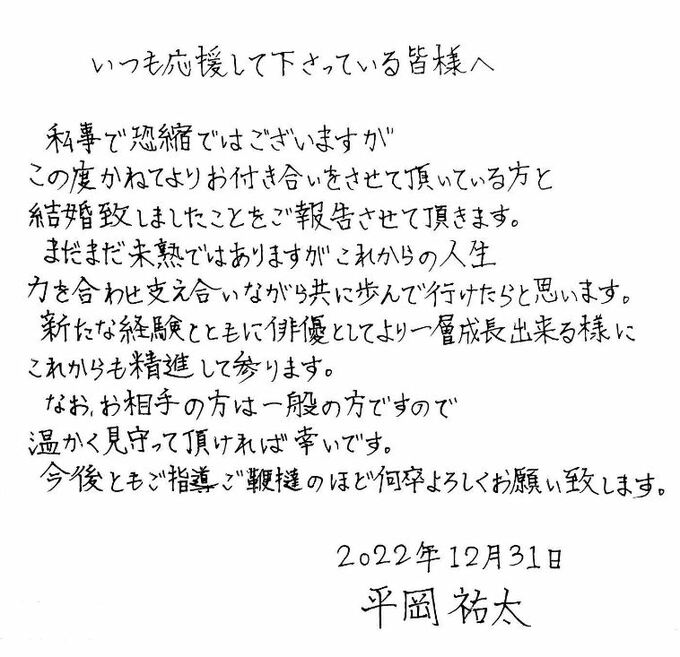 いつも応援して下さっている皆様へ
私事で恐縮ではございますが
この度かねてよりお付き合いをさせて頂いている方と
結婚致しましたことをご報告させて頂きます。
まだまだ未熟ではありますがこれからの人生
力を合わせ支え合いながら共に歩んで行けたらと思います。
新たな経験とともに俳優としてより一層成長出来る様に
これからも精進して参ります。
なお、お相手の方は一般の方ですので
温かく見守って頂ければ幸いです。
今後ともご指導ご鞭撻のほど何卒よろしくお願い致します。
2022年12月31日
平岡祐太